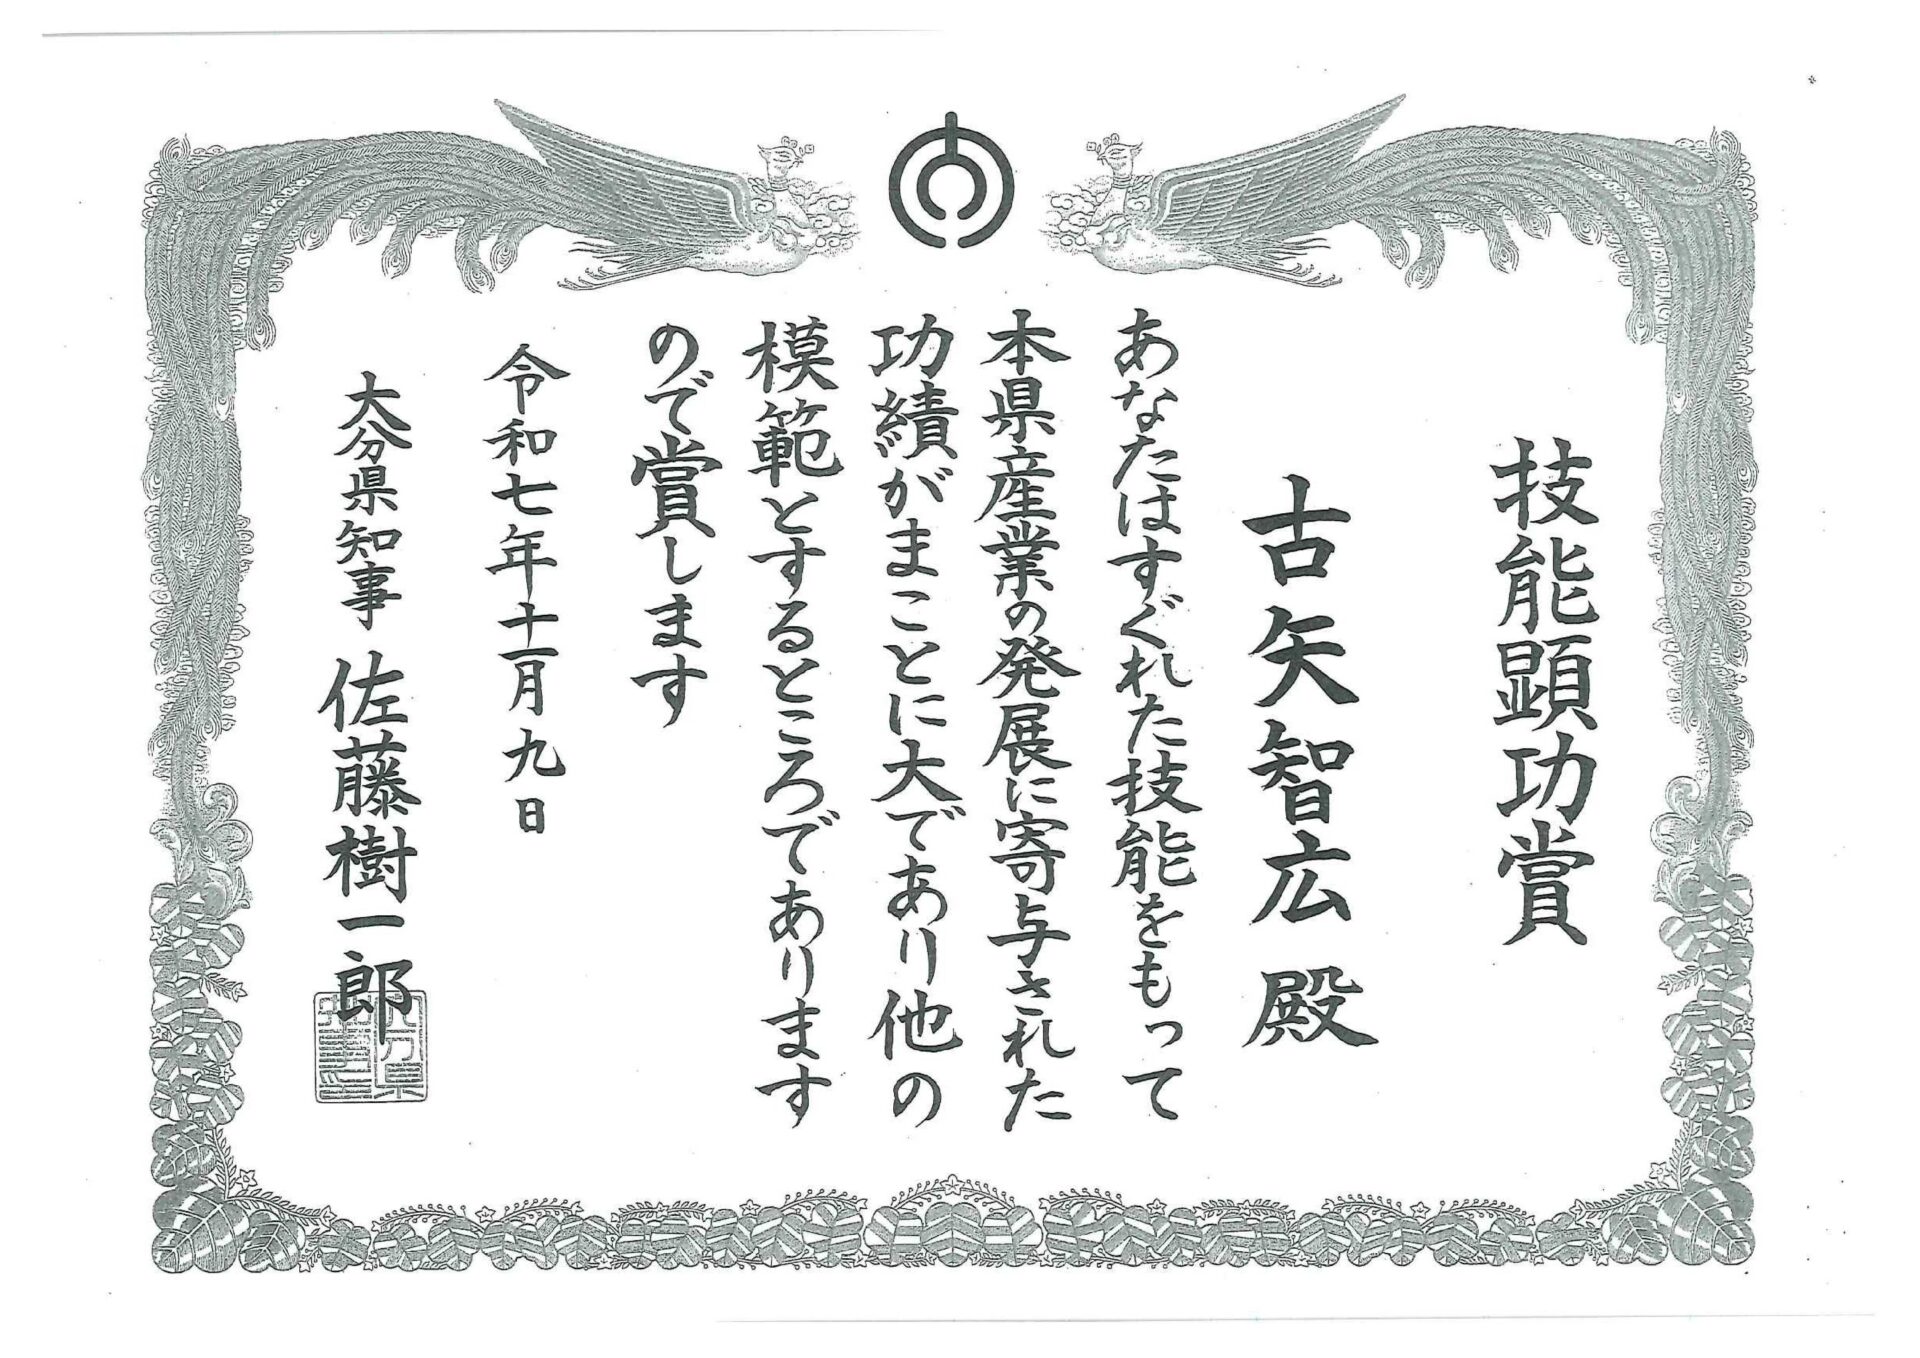 技能顕功賞
古矢智広 殿
あなたはすぐれた技能をもって
本県産業の発展に寄与された
功績がまことに大であり他の
模範とするところであります
ので賞します
令和七年十一月九日
大分県知事 佐藤樹一郎